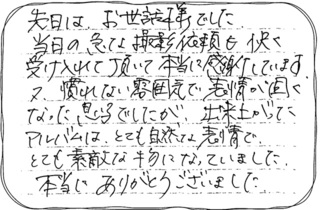 先日は、お世話様でした。
当日の急な撮影依頼も快く
受け入れて頂いて本当に感謝しています。
又、慣れない雰囲気で表情が固く
なった息子でしたが、出来上がった
アルバムは、とても自然な表情で、
とても素敵な物になっていました。
本当にありがとうございました。